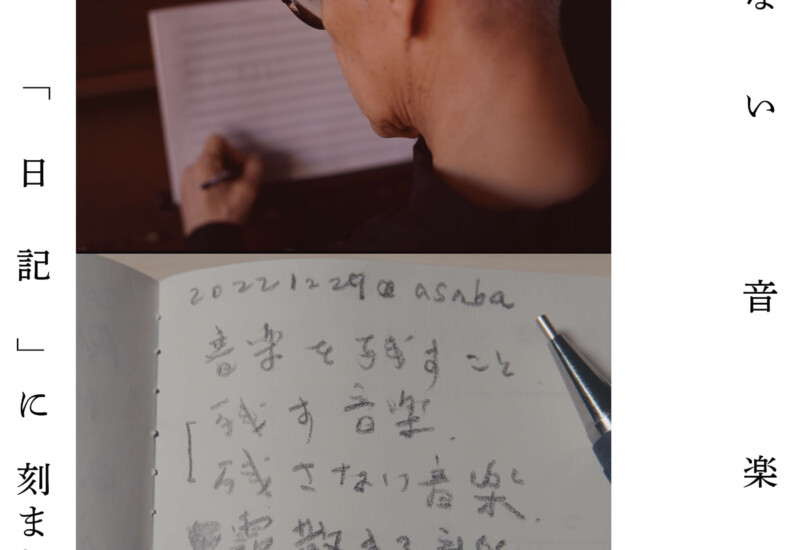 ない音楽
20221229@asaba
音楽を残すこと
残す音楽.
残さない音楽.
散する音楽
「日記」に刻ま